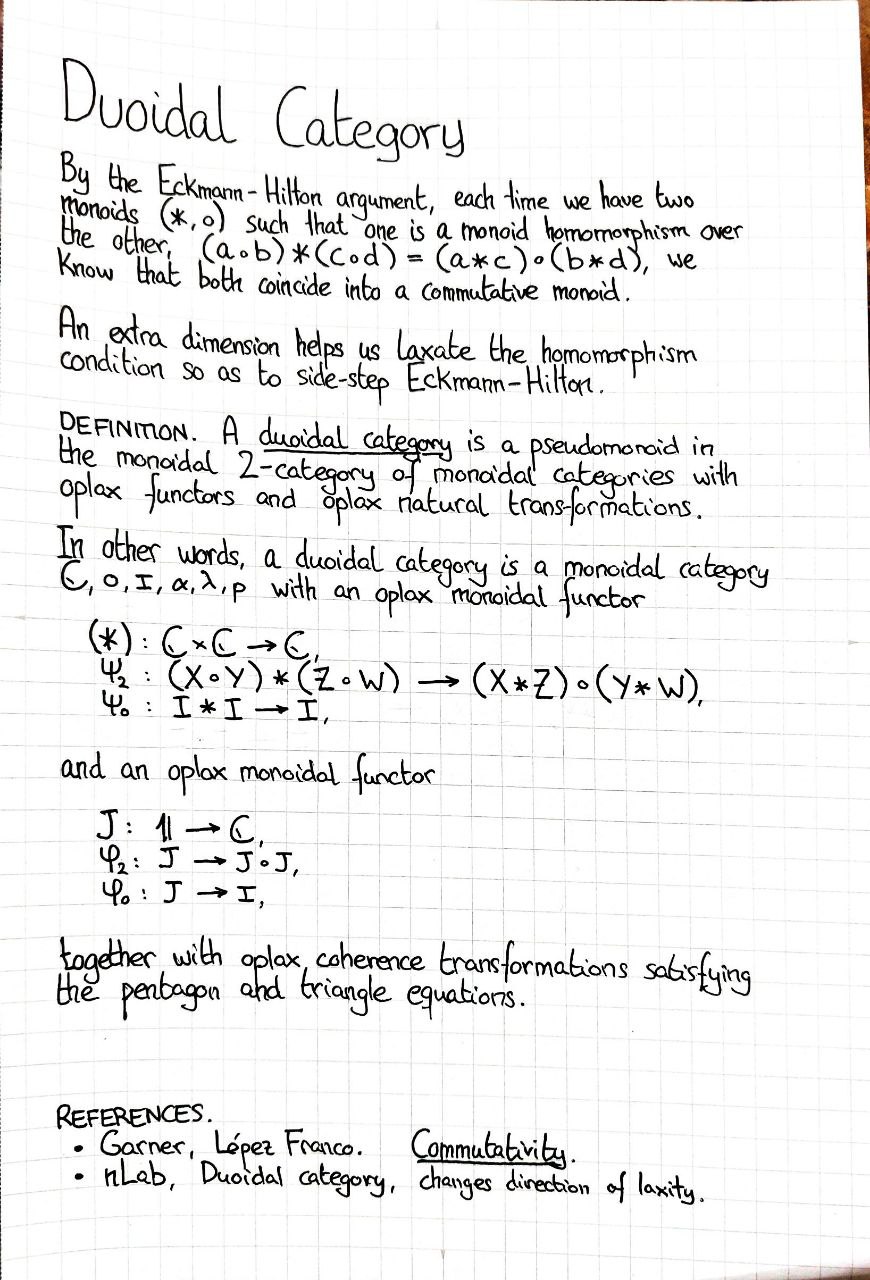 Duoidal Category
By the Eckmann-Hilton argument, each time we have two
monoids (*, ∘) such that one is a monoid homomorphism over
the other, (a∘b)*(c∘d) = (a*c)∘(b*d), we
know that both coincide into a commutative monoid.
An extra dimension helps us laxate the homomorphism
condition so as to side-step Eckmann-Hilton.
DEFINITION. A duoidal category is a pseudomonoid in
the monoidal 2-category of monoidal categories with
oplax functors and oplax natural transformations.
In other words, a duoidal category is a monoidal category
ℂ, ∘, I, α, λ, ρ with an oplax monoidal functor
(*) : ℂ×ℂ → ℂ,
Ψ₂ : (X∘Y)*(Z∘W) → (X*Z)∘(Y*W),
Ψ₀ : I*I → I,
and an oplax monoidal functor
J : 𝟙 → ℂ,
φ₂ : J → J∘J,
φ₀ : J → I,
together with oplax coherence transformations satisfying
the pentagon and triangle equations.
REFERENCES.
• Garner, Lépez Franco. Commutativity.
• nLab, Duoidal category, changes direction of laxity.